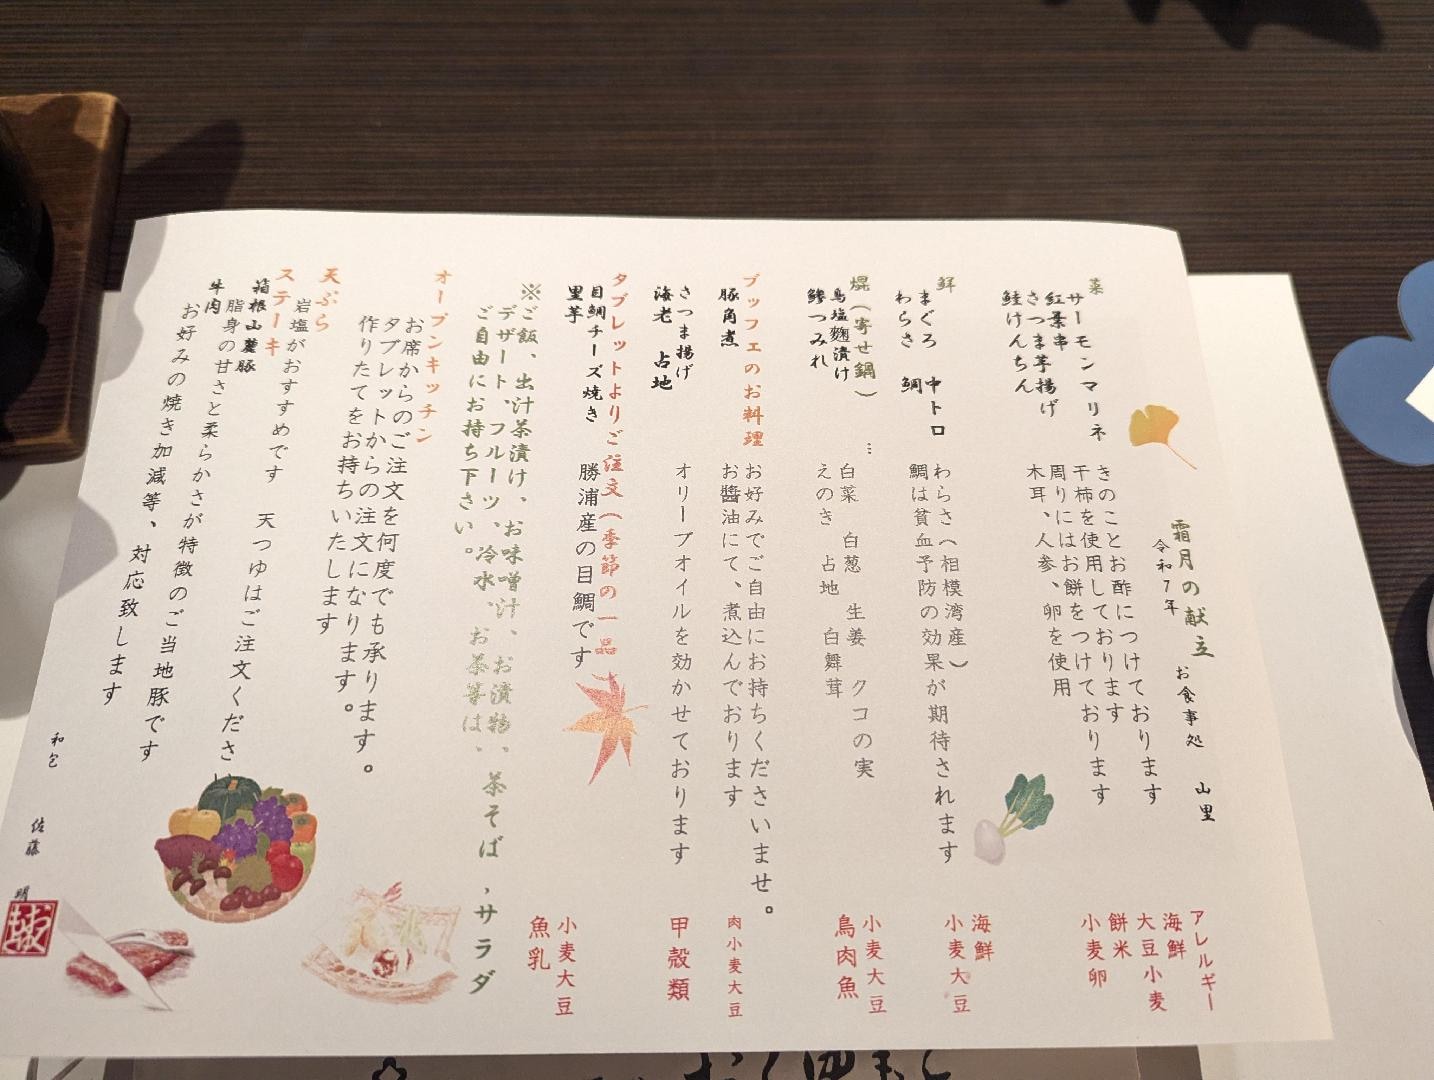 霜月の献立
令和7年
お食事処 山里
アレルギー
菜
サーモンマリネ
紅葉串
さつま芋揚げ
鮭けんちん
きのことお酢につけております
干柿を使用しております
周りにはお餅をつけております
木耳、人参、卵を使用
海鮮
大豆小麦
餅米
小麦卵
鮮
まぐろ 中トロ
わらさ 鯛
わらさ(相模湾産)
鯛は貧血予防の効果が期待されます
海鮮
小麦大豆
焜(寄せ鍋)
鳥塩麹漬け
鯵つみれ
…
白菜 白葱 生姜 クコの実
えのき 占地 白舞茸
小麦大豆
鳥肉魚
ブッフェのお料理
豚角煮
お好みでご自由にお持ちくださいませ。
お醬油にて、煮込んでおります
肉小麦大豆
さつま揚げ
海老 占地
オリーブオイルを効かせております
甲殻類
タブレットよりご注文(季節の一品)
目鯛チーズ焼き
里芋
勝浦産の目鯛です
小麦大豆
魚乳
※ご飯、出汁茶漬け、お味噌汁、お漬物、茶そば、サラダ
デザート、フルーツ、冷水、お茶等は、
ご自由にお持ち下さい。
オープンキッチン
お席からのご注文を何度でも承ります。
タブレットからの注文になります。
作りたてをお持ちいたします
天ぷら
岩塩がおすすめです 天つゆはご注文ください
ステーキ
箱根山麓豚
脂身の甘さと柔らかさが特徴のご当地豚です
牛肉
お好みの焼き加減等、対応致します
和包 佐藤 明